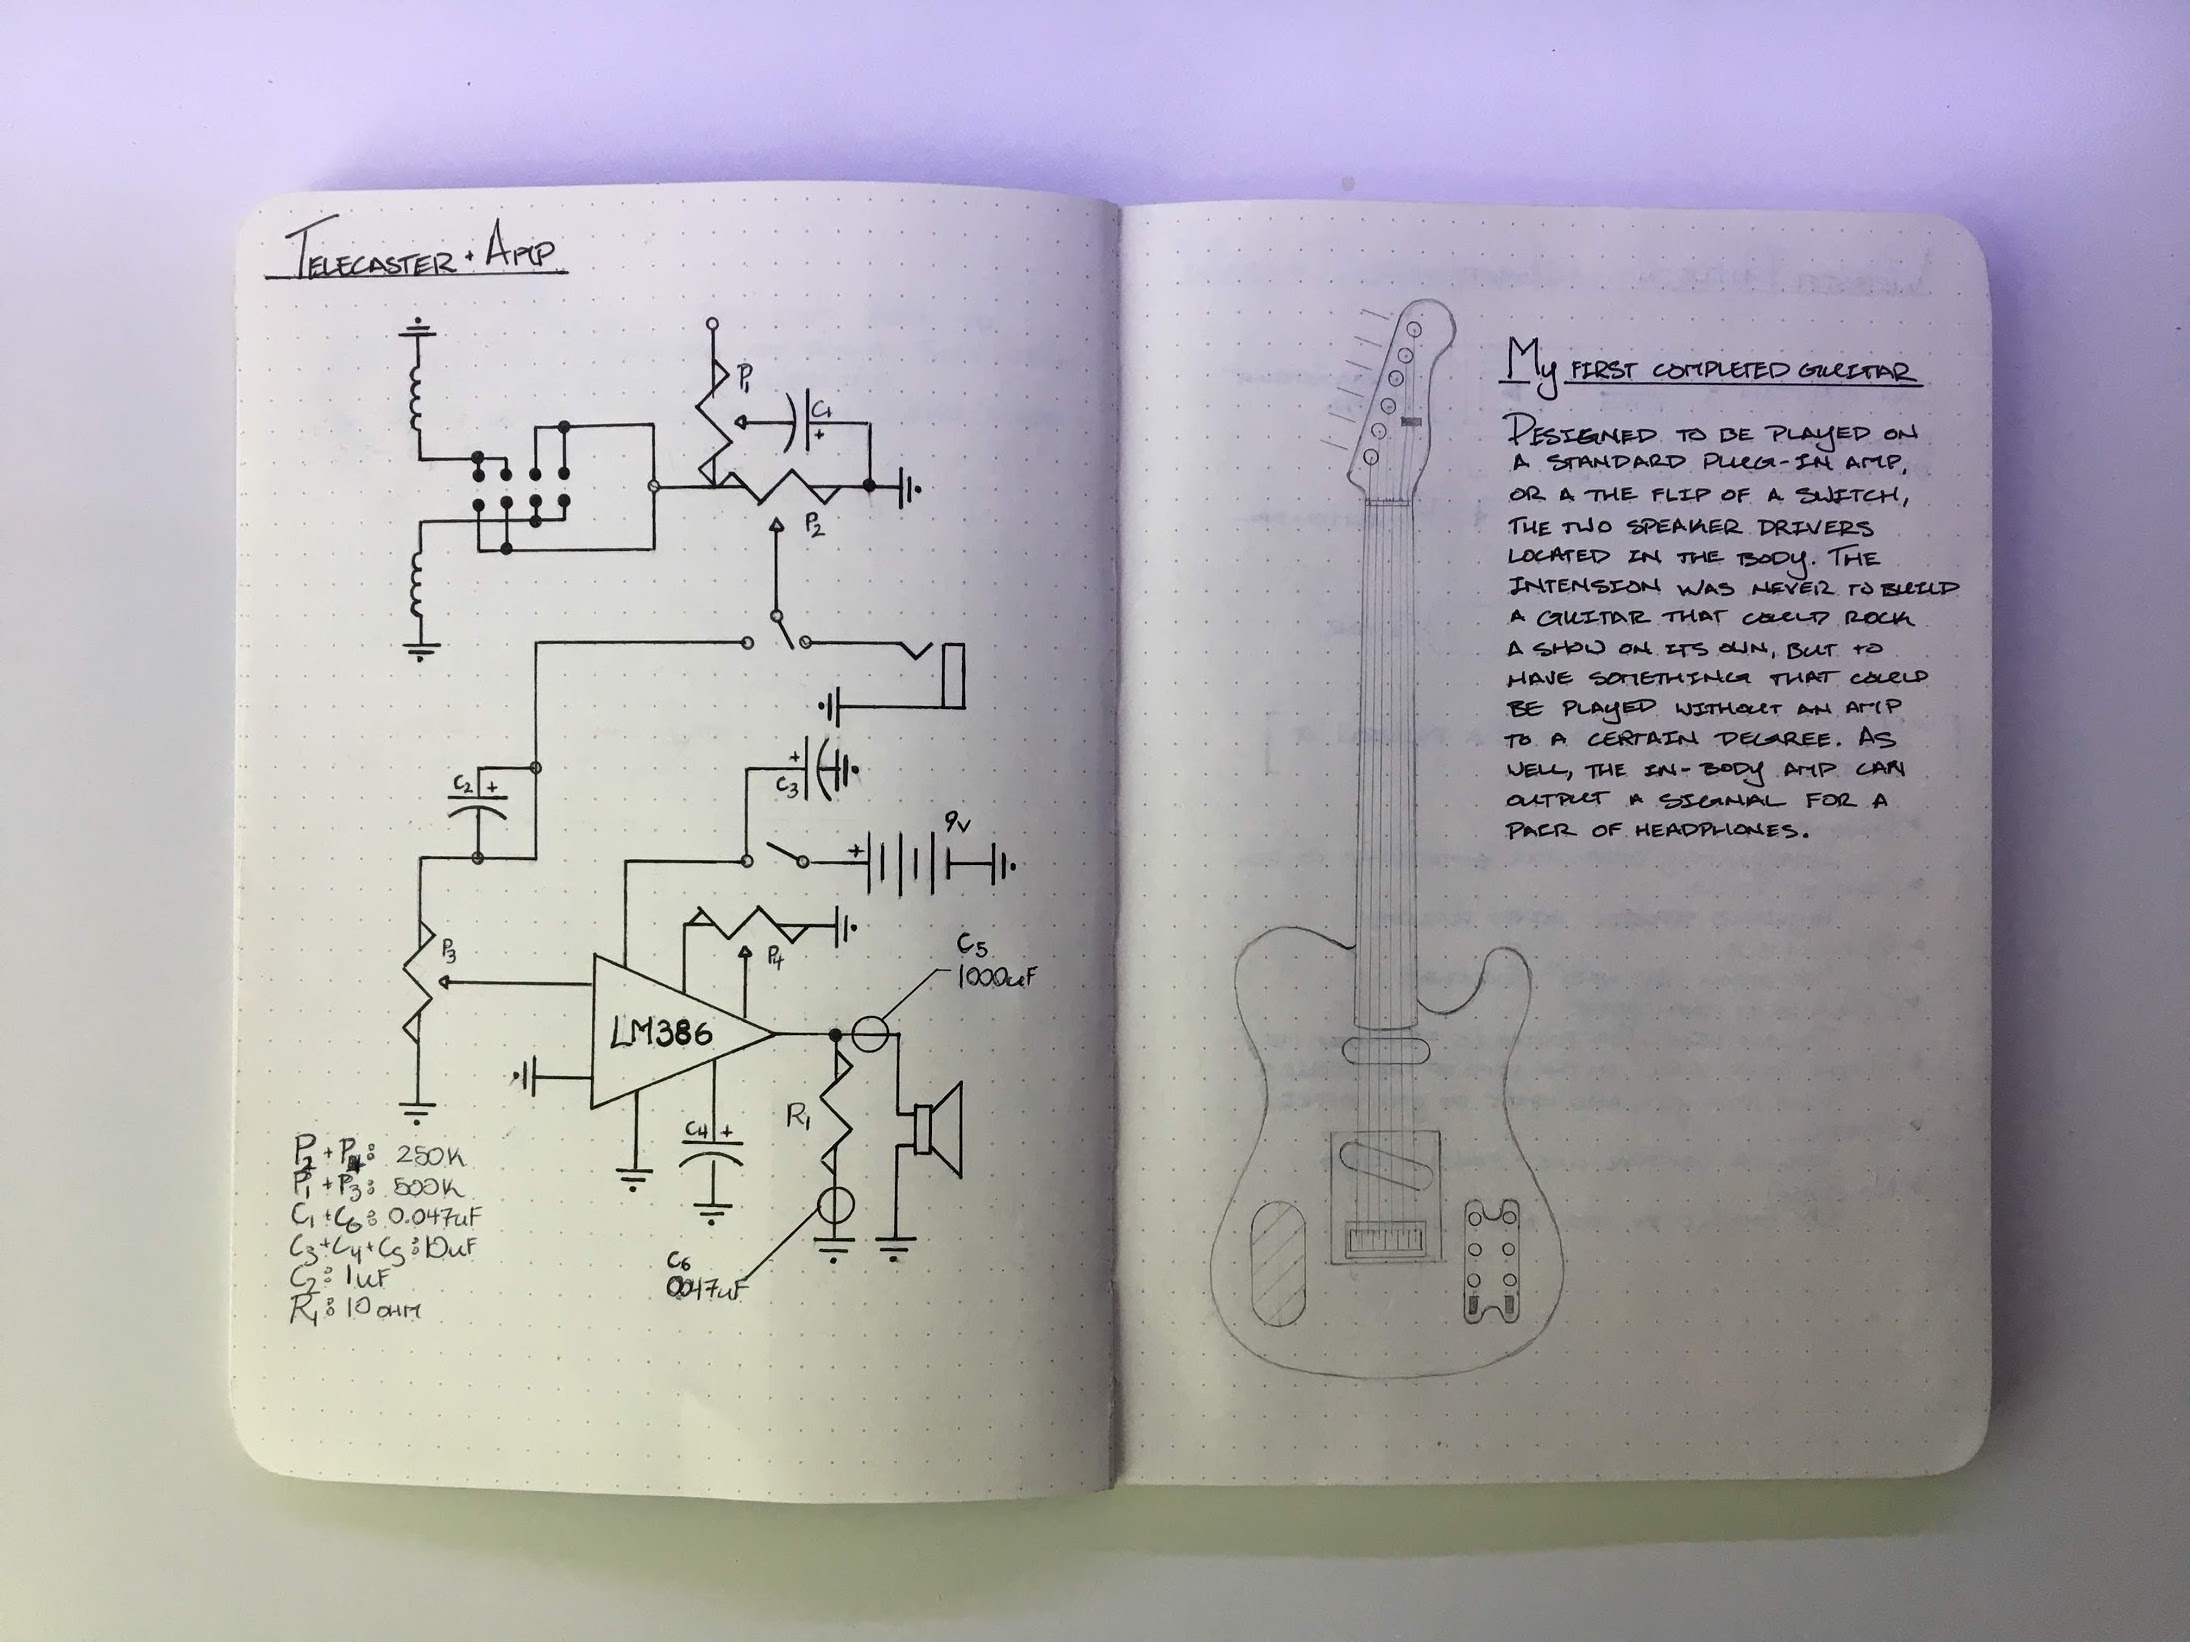 TELECASTER + AMP
P1
C1
+
P2
C2 +
+
C3
9V
+
P3
P4
C5
1000uF
LM386
C4 +
R1
C6
0.047uF
P2 + P4: 250K
P1 + P3: 500K
C1 + C6: 0.047uF
C3 + C4 + C5: 10uF
C2: 1uF
R1: 10 OHM
MY FIRST COMPLETED GUITAR
DESIGNED TO BE PLAYED ON
A STANDARD PLUG-IN AMP,
OR A THE FLIP OF A SWITCH,
THE TWO SPEAKER DRIVERS
LOCATED IN THE BODY. THE
INTENSION WAS NEVER TO BUILD
A GUITAR THAT COULD ROCK
A SHOW ON ITS OWN, BUT TO
HAVE SOMETHING THAT COULD
BE PLAYED WITHOUT AN AMP
TO A CERTAIN DEGREE. AS
WELL, THE IN-BODY AMP CAN
OUTPUT A SIGNAL FOR A
PAIR OF HEADPHONES.